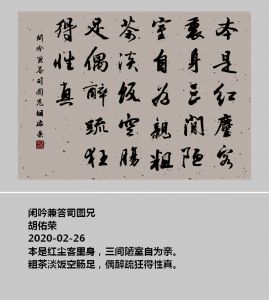 本是紅塵客
裏身三間陋
室自為親粗
茶淡饭空腸
足偶醉疏狂
得性真
闲吟兼答司图兄 胡佑榮
闲吟兼答司图兄
胡佑荣
2020-02-26
本是红尘客里身，三间陋室自为亲。
粗茶淡饭空肠足，偶醉疏狂得性真。